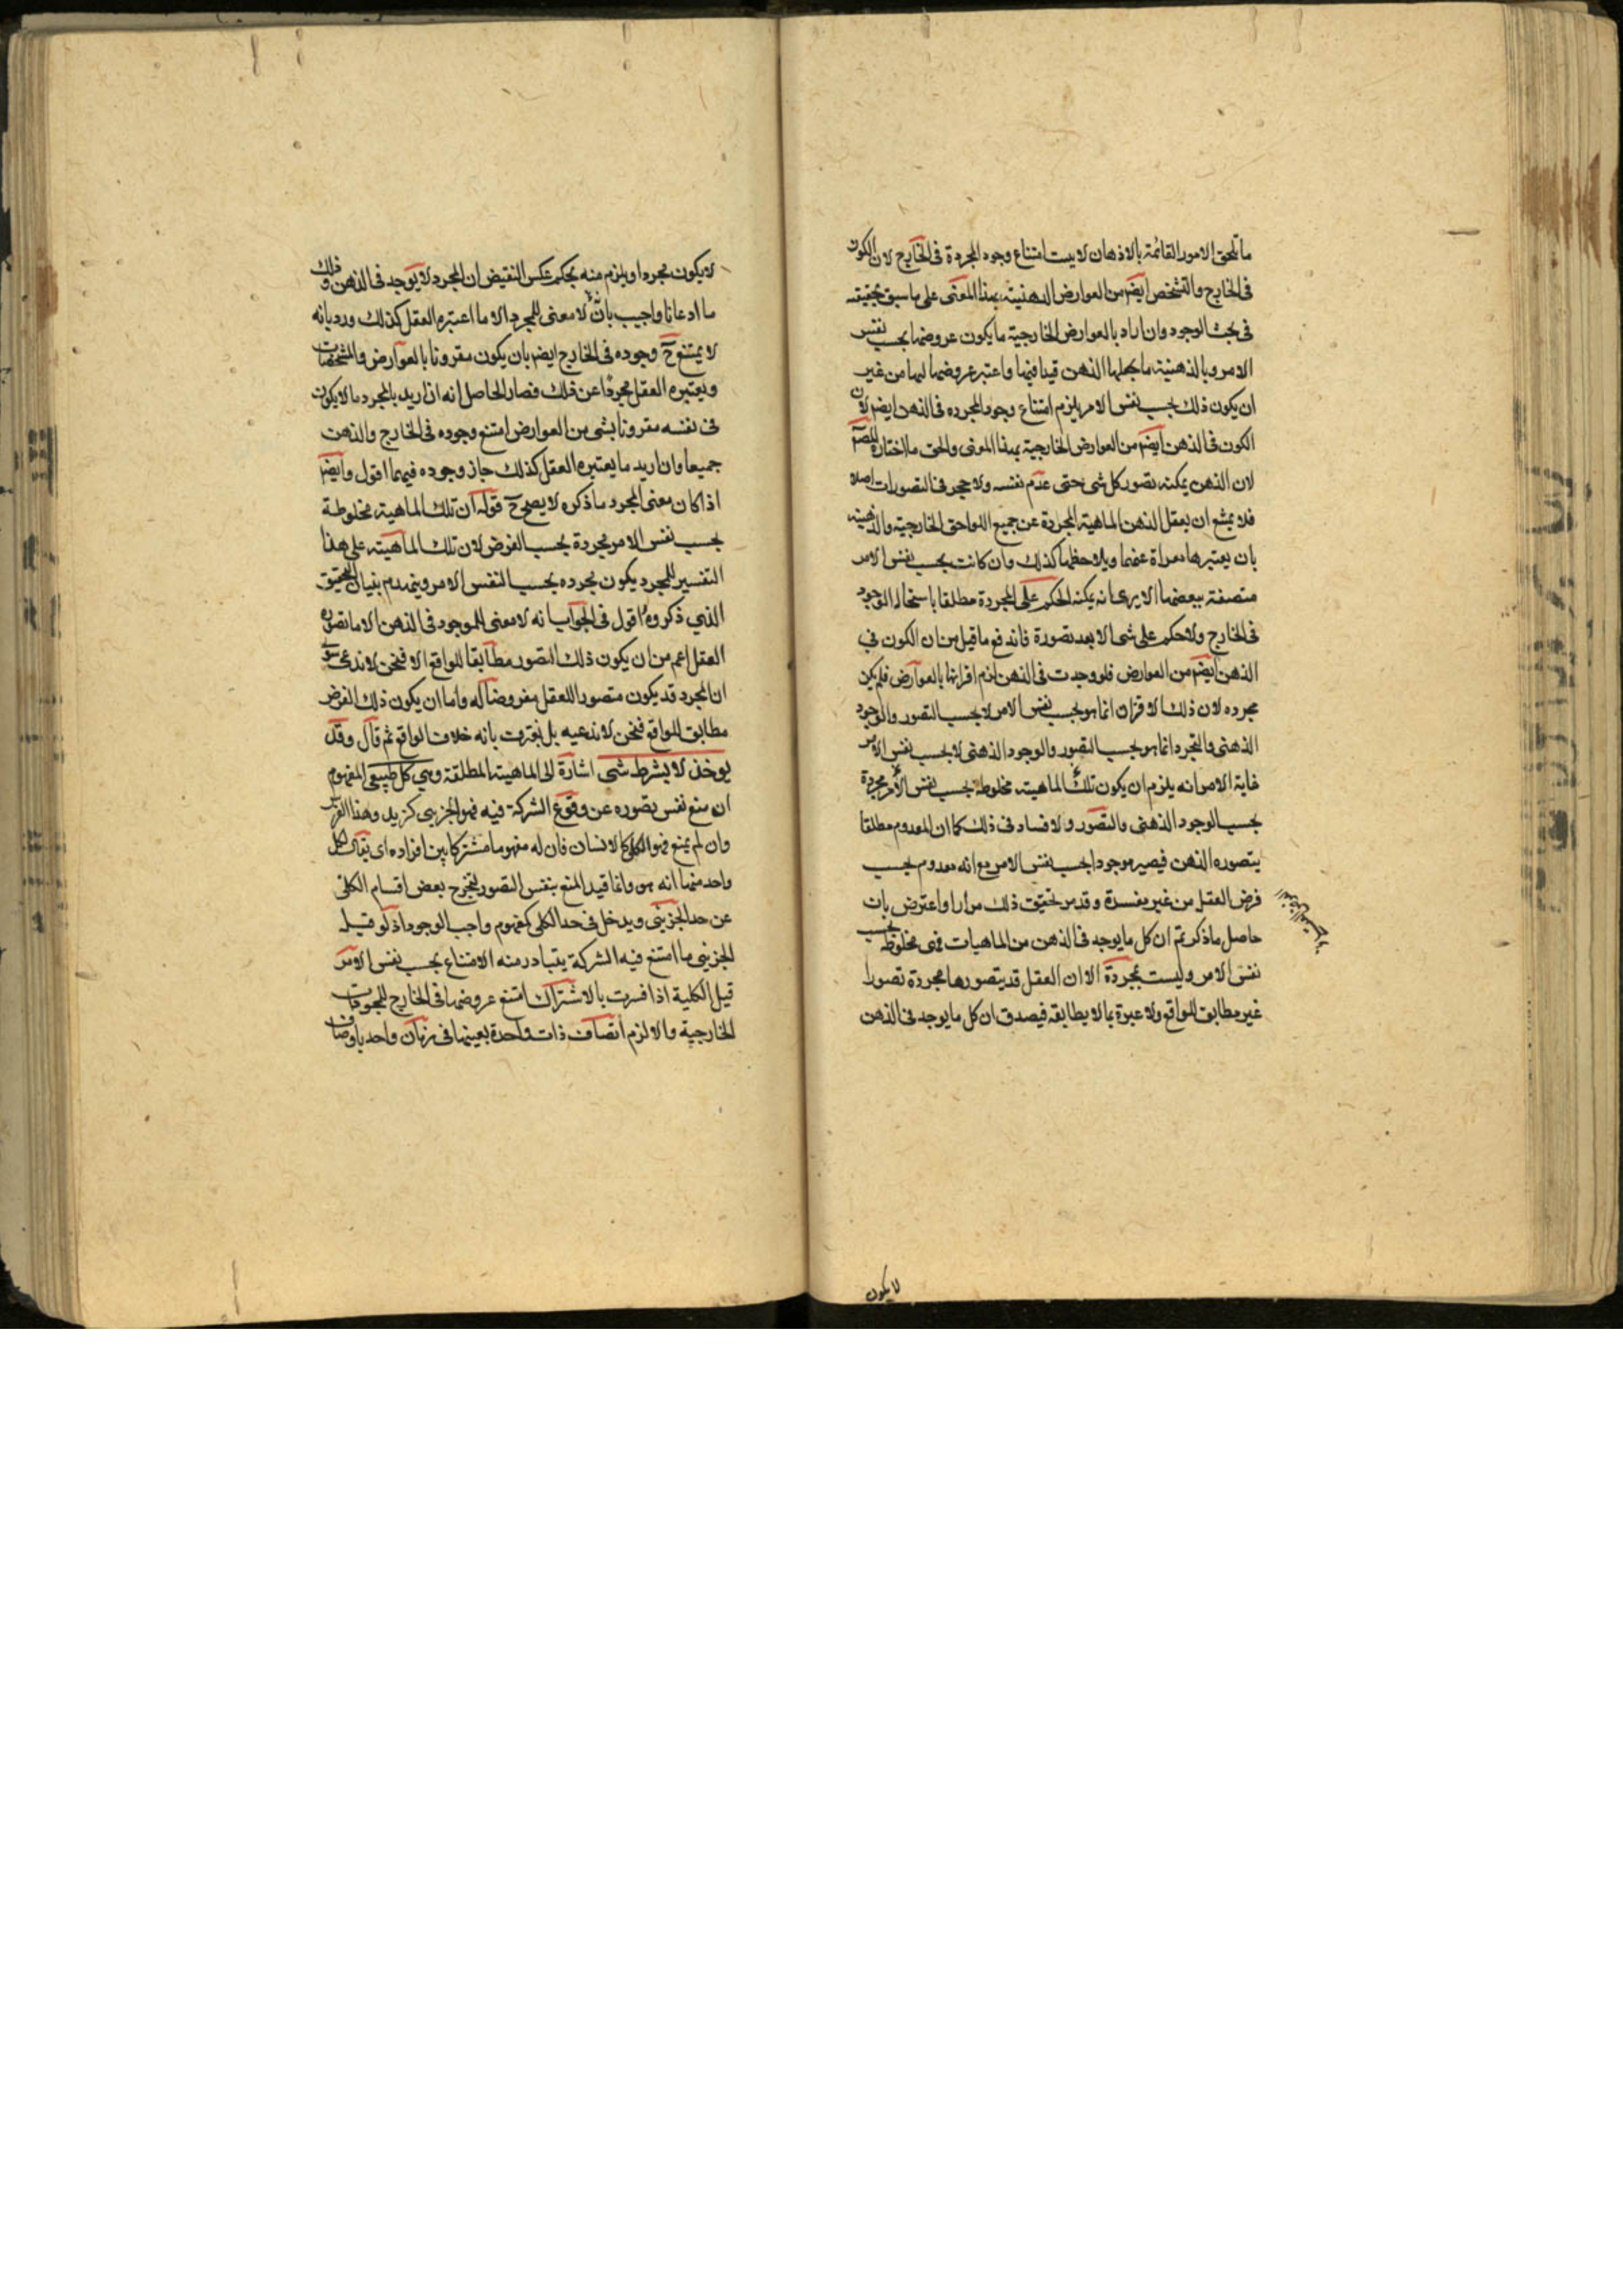 ما تلحق الامور القائمة بالاذهان لا يبت امتناع وجود المجردة فى الخارج لان الكون
فى الخارج والتشخص ايضم من العوارض الذهنية بهذا المعنى على ما سبق تحقيقه
فى بحث الوجود وان اراد بالعوارض الخارجية ما يكون عروضها بحسب نفس
الامر وبالذهنية ما يجعلها الذهن قيدا فيها واعتبر عروضها لها من غير
ان يكون ذلك بحسب نفس الامر يلزم امتناع وجود المجرده فى الذهن ايضم لان
الكون فى الذهن ايضم من العوارض الخارجية بهذا المعنى والحق ما اختاره المصم
لان الذهن يمكنه تصور كل شى حتى عدم نفسه ولا حجر فى التصورات اصلا
فلا يمتنع ان يعقل الذهن الماهية المجردة عن جميع اللواحق الخارجية والذهنية
بان يعتبرها معراة عنها ويلاحظها كذلك وان كانت بحسب نفس الامر
متصفة ببعضها الا يرى انه يمكنه الحكم على المجردة مطلقا باستحالة الوجود
فى الخارج ولا حكم على شى الا بعد تصورة فاندفع ما قيل من ان الكون فى
الذهن ايضم من العوارض فلو وجدت فى الذهن لزم اقرانها بالعوارض فلم يكن
مجرده لان ذلك الاقران انما هو بحسب نفس الامر لا بحسب التصور والوجود
الذهنى والتجرد انما هو بحسب التصور والوجود الذهنى لا بحسب نفس الامر
غاية الامر انه يلزم ان يكون تلك الماهية مخلوطة بحسب نفس الامر مجردة
بحسب الوجود الذهنى والتصور ولا فساد فى ذلك كما ان المعدوم مطلقا
يتصوره الذهن فيصير موجودا بحسب نفس الامر مع انه معدوم بحسب
فرض العقل من غير مفسدة وقد مر تحقيق ذلك مرارا واعترض بان
حاصل ما ذكرتم ان كل ما يوجد فى الذهن من الماهيات فهى مخلوطة بحسب
نفس الامر وليست بمجردة الا ان العقل قد يتصورها مجردة تصورا
غير مطابق للواقع ولا عبرة بما لا يطابقه فيصدق ان كل ما يوجد فى الذهن
لا يكون
لا يكون مجردا ويلزم منه بحكم عكس النقيض ان المجرد لا يوجد فى الذهن وذلك
ما ادعانا واجيب بانه لا معنى للمجرد الا ما اعتبره العقل كذلك ورد بانه
لا يمتنع ح وجوده فى الخارج ايضم بان يكون مقرونا بالعوارض والمشخصات
ويعتبره العقل مجردا عن ذلك فصار الحاصل انه ان اريد بالمجرد ما لا يكون
فى نفسه مقرونا بشى من العوارض امتنع وجوده فى الخارج والذهن
جميعا وان اريد ما يعتبره العقل كذلك جاز وجوده فيهما اقول وايضم
اذا كان معنى المجرد ما ذكره لا يصح ح قوله ان تلك الماهية مخلوطة
بحسب نفس الامر مجردة بحسب الفرض لان تلك الماهية على هذا
التفسير للمجرد يكون مجرده بحسب النفس الامر وينهدم بنيان التحقيق
الذي ذكروه اقول فى الجواب انه لا معنى للموجود فى الذهن الا ما تصوره
العقل اعم من ان يكون ذلك التصور مطابقا للواقع الا فنحن لا ندعى سوى
ان المجرد قد يكون متصورا للعقل مفروضا له واما ان يكون ذلك الفرض
مطابق للواقع فنحن لا ندعيه بل نعترف بانه خلاف الواقع ثم قال وقد
يوخذ لا بشرط شى اشارة الى الماهية المطلقة وهى كلى طبيعى المفهوم
ان منع نفس تصوره عن وقوع الشركة فيه فهو الجزيى كزيد وهذا الفرس
وان لم يمنع فهو الكلى كالانسان فان له مفهوما مشتركا بين افراده اى يقال لكل
واحد منها انه هو وانما قيد المنع بنفس التصور ليخرج بعض اقسام الكلى
عن حد الجزيى ويدخل فى حد الكلى كمفهوم واجب الوجود اذ لو قيل
الجزيى ما امتنع فيه الشركة يتبادر منه الامتناع بحسب نفس الامر
قيل الكلية اذا فسرت بالاشتراك امتنع عروضها فى الخارج للموجودات
الخارجية والا لزم اتصاف ذات واحدة بعينها فى زمان واحد باوصاف